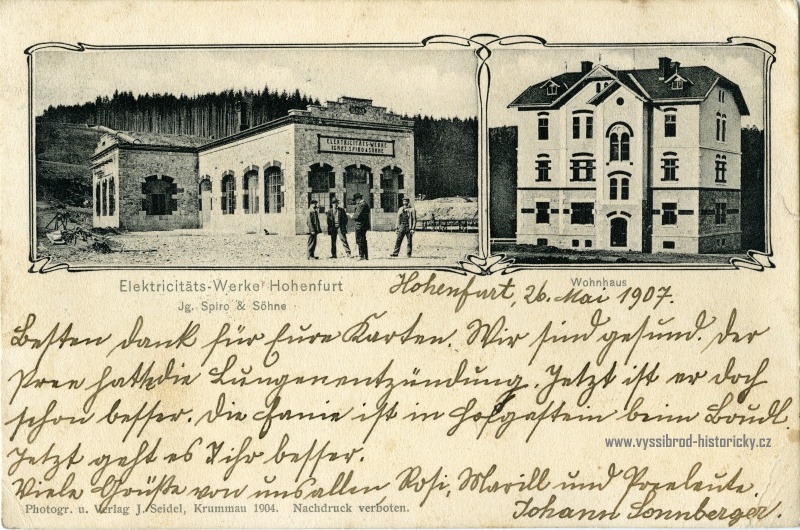 ELEKTRICITÄTS-WERKE
IGNAZ SPIRO & SÖHNE
Elektricitäts-Werke Hohenfurt
Jg. Spiro & Söhne
Wohnhaus
Hohenfurt, 26. Mai 1907.
Besten dank für Eure Karten. Wir sind gesund. Der
hatte die Lungenentzündung. Jetzt ist er doch
schon besser. Die Fanie ist in Hofgastein beim
Jetzt geht es ihr besser.
Viele Grüße von uns allen Rosi, Marill und
Johann Sonnberger.
www.vyssibrod-historicky.cz
Photogr. u. Verlag J. Seidel, Krummau 1904. Nachdruck verboten.